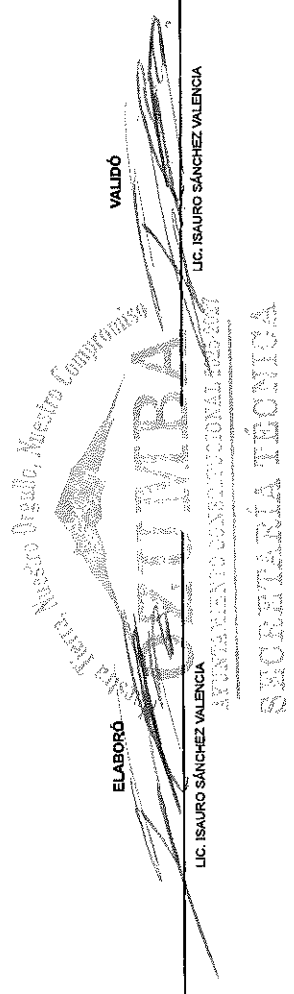 ELABORÓ
LIC. ISAURO SÁNCHEZ VALENCIA
VALIDÓ
LIC. ISAURO SÁNCHEZ VALENCIA
Nuestra Tierra, Nuestro Orgullo, Nuestro Compromiso
OZUMBA
AYUNTAMIENTO CONSTITUCIONAL
SECRETARÍA TÉCNICA